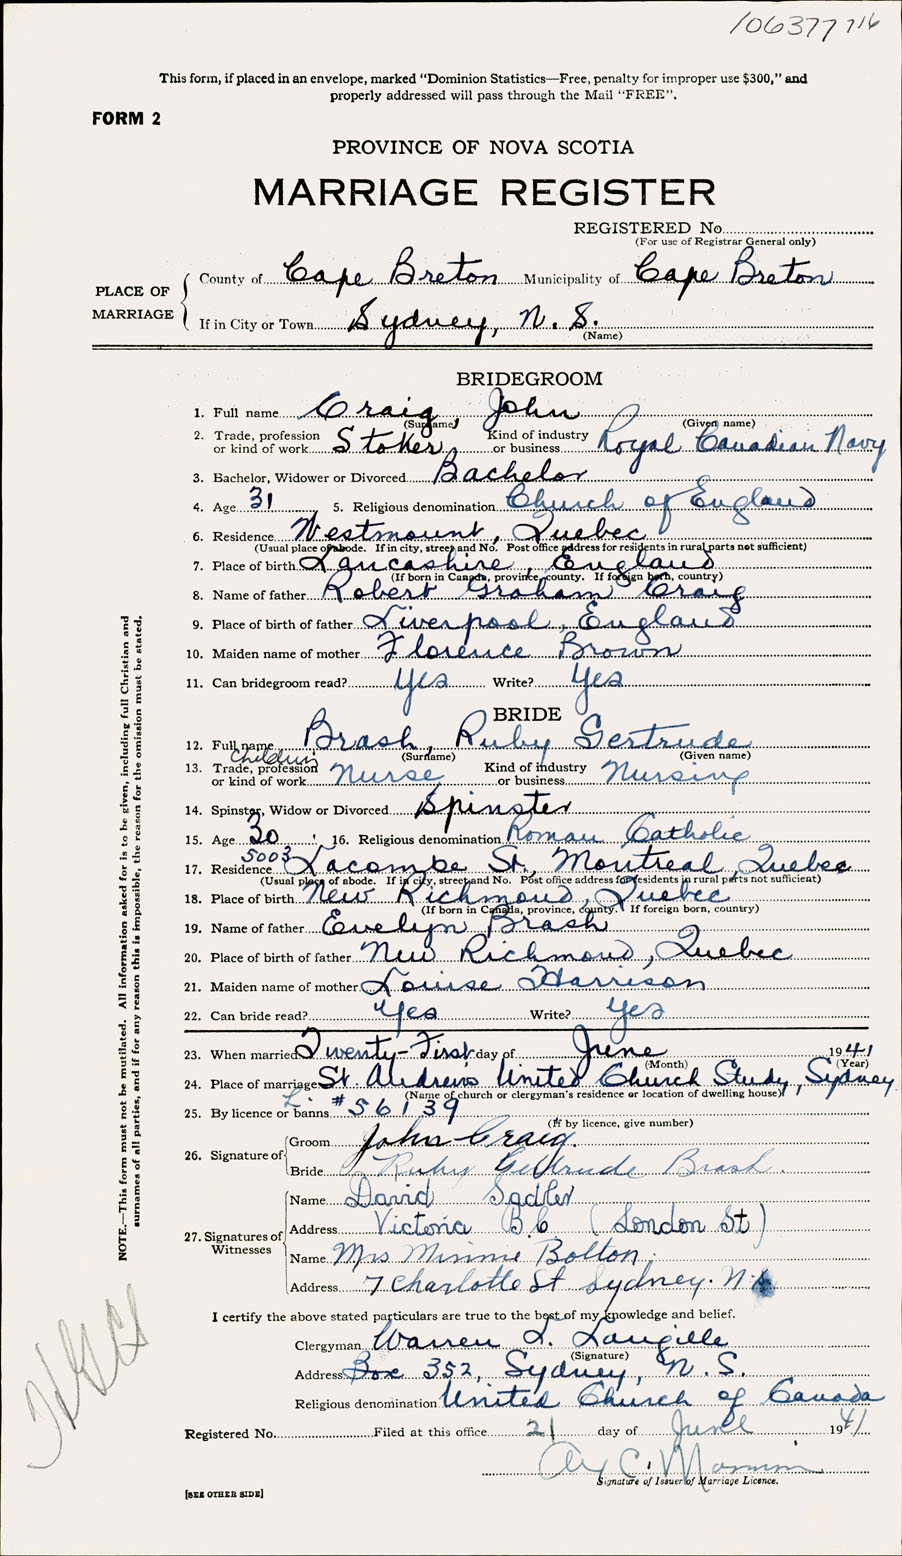 106377 716
This form, if placed in an envelope, marked "Dominion Statistics—Free, penalty for improper use $300," and
properly addressed will pass through the Mail "FREE".
FORM 2
PROVINCE OF NOVA SCOTIA
MARRIAGE REGISTER
REGISTERED No.
(For use of Registrar General only)
PLACE OF MARRIAGE
County of Cape Breton Municipality of Cape Breton
If in City or Town Sydney, N. S.
(Name)
BRIDEGROOM
1. Full name Craig, John
(Surname) (Given name)
2. Trade, profession or kind of work Stoker Kind of industry or business Royal Canadian Navy
3. Bachelor, Widower or Divorced Bachelor
4. Age 31 5. Religious denomination Church of England
6. Residence Westmount, Quebec
(Usual place of abode. If in city, street and No. Post office address for residents in rural parts not sufficient)
7. Place of birth Lancashire, England
(If born in Canada, province, county. If foreign born, country)
8. Name of father Robert Graham Craig
9. Place of birth of father Liverpool, England
10. Maiden name of mother Florence Brown
11. Can bridegroom read? Yes Write? Yes
BRIDE
12. Full name Brash, Ruby Gertrude
(Surname) (Given name)
13. Trade, profession or kind of work Children's Nurse Kind of industry or business Nursing
14. Spinster, Widow or Divorced Spinster
15. Age 30 16. Religious denomination Roman Catholic
17. Residence 5003 Lacombe St., Montreal, Quebec
(Usual place of abode. If in city, street and No. Post office address for residents in rural parts not sufficient)
18. Place of birth New Richmond, Quebec
(If born in Canada, province, county. If foreign born, country)
19. Name of father Evelyn Brash
20. Place of birth of father New Richmond, Quebec
21. Maiden name of mother Louise Harrison
22. Can bride read? Yes Write? Yes
23. When married Twenty-First day of June 1941
(Month) (Year)
24. Place of marriage St. Andrew's United Church Study, Sydney
(Name of church or clergyman's residence or location of dwelling house)
25. By licence or banns L. #56139
(If by licence, give number)
26. Signature of
Groom John Craig.
Bride Ruby Gertrude Brash.
27. Signatures of Witnesses
Name David Sadler
Address Victoria B.C (London St)
Name Mrs Minnie Bolton.
Address 7 Charlotte St Sydney. N.S.
I certify the above stated particulars are true to the best of my knowledge and belief.
Clergyman Warren L. Langille
(Signature)
Address Box 352, Sydney, N. S.
Religious denomination United Church of Canada
Registered No. Filed at this office 21 day of June 1941
Signature of Issuer of Marriage Licence.
[SEE OTHER SIDE]
NOTE.—This form must not be mutilated. All information asked for is to be given, including full Christian and
surnames of all parties, and if for any reason this is impossible, the reason for the omission must be stated.